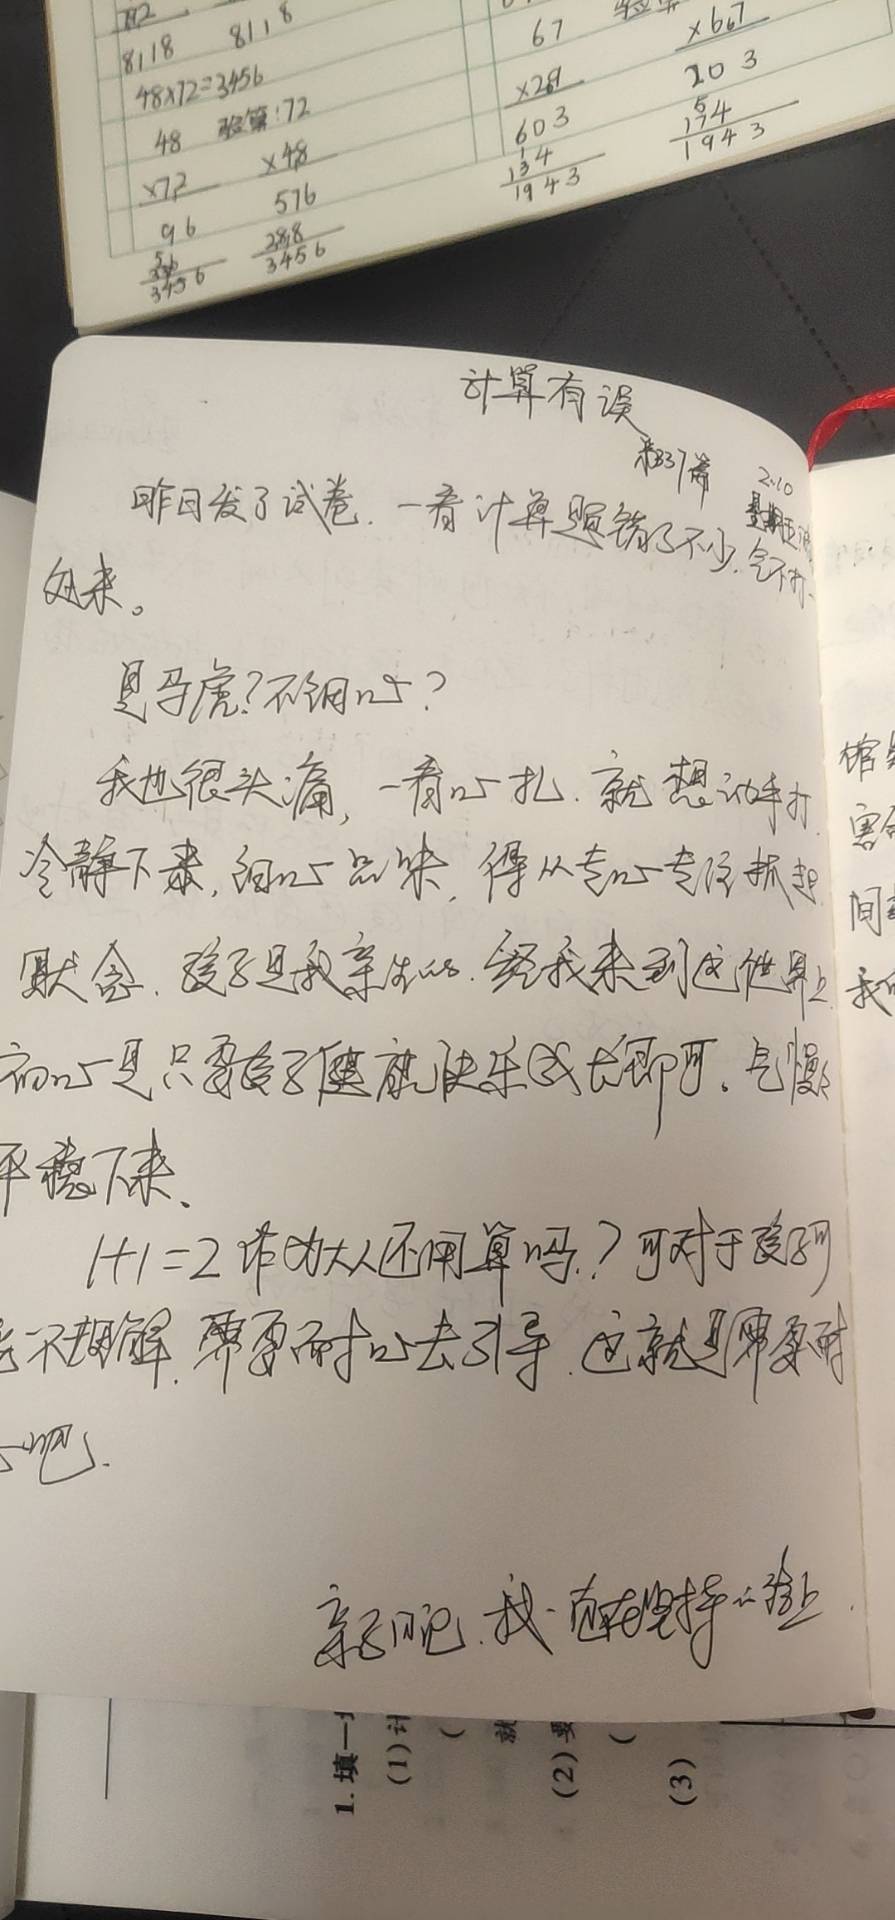 8118 8118
48×72=3456
48 验算:72
×72 ×48
96 576
288
3456 3456
67 ×67
×29 203
603 174
134 1943
1943
计算有误
第337篇 2.10
昨日发了试卷.一看计算题错了不少.气不打一 星期五
处来。
是马虎?不细心?
我也很头痛,一看心扎.就想动手打.
冷静下来,细心品味,得从专心专注抓起
默念.孩子是我亲生的.经我来到这世界上
初心是只要孩子健康快乐成长即可。气慢慢
平稳下来、
1+1=2作为大人还用算吗.?可对于孩子可
能不理解.需要耐心去引导.这就是需要耐
心吧.
亲子日记.我一直在坚持的路上.
馆
害
间
我
1.填一
(1)计
(
就
(2)要
(
(3)